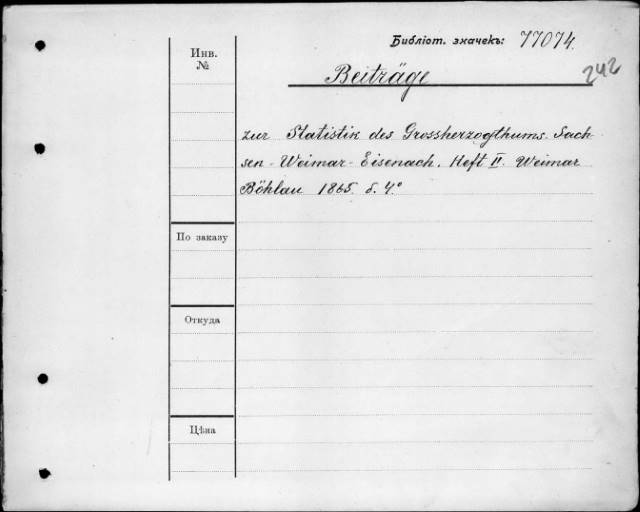 Библіот. значекъ: 77074.
242
Инв.
№
Beiträge
zur Statistik des Grossherzogthums Sach-
sen-Weimar-Eisenach. Heft II. Weimar
Böhlau 1865. 4°
По заказу
Откуда
Цѣна